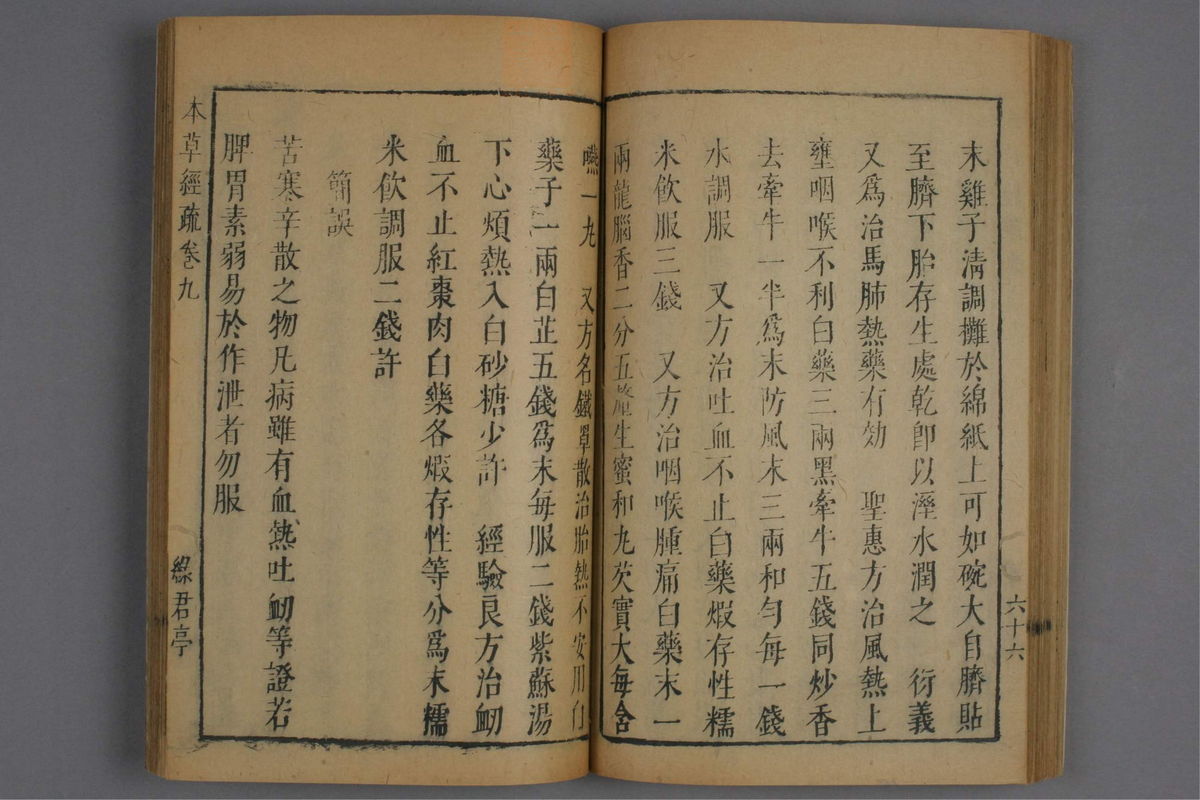 末雞子淸調攤於綿紙上可如碗大自臍貼
至臍下胎存生處乾卽以溼水潤之　衍義
又爲治馬肺熱藥有効　聖惠方治風熱上
壅咽喉不利白藥三兩黑牽牛五錢同炒香
去牽牛一半爲末防風末三兩和勻每一錢
水調服　又方治吐血不止白藥煆存性糯
米飮服三錢　又方治咽喉腫痛白藥末一
兩龍腦香二分五釐生蜜和丸芡實大每含
嚥一丸　又方名鐵罩散治胎熱不安用白
藥子一兩白芷五錢爲末每服二錢紫蘇湯
下心煩熱入白砂糖少許　經驗良方治衂
血不止紅棗肉白藥各煆存性等分爲末糯
米飮調服二錢許
簡誤
苦寒辛散之物凡病雖有血熱吐衂等證若
脾胃素弱易於作泄者勿服
六十六
本草經疏卷九
綠君亭